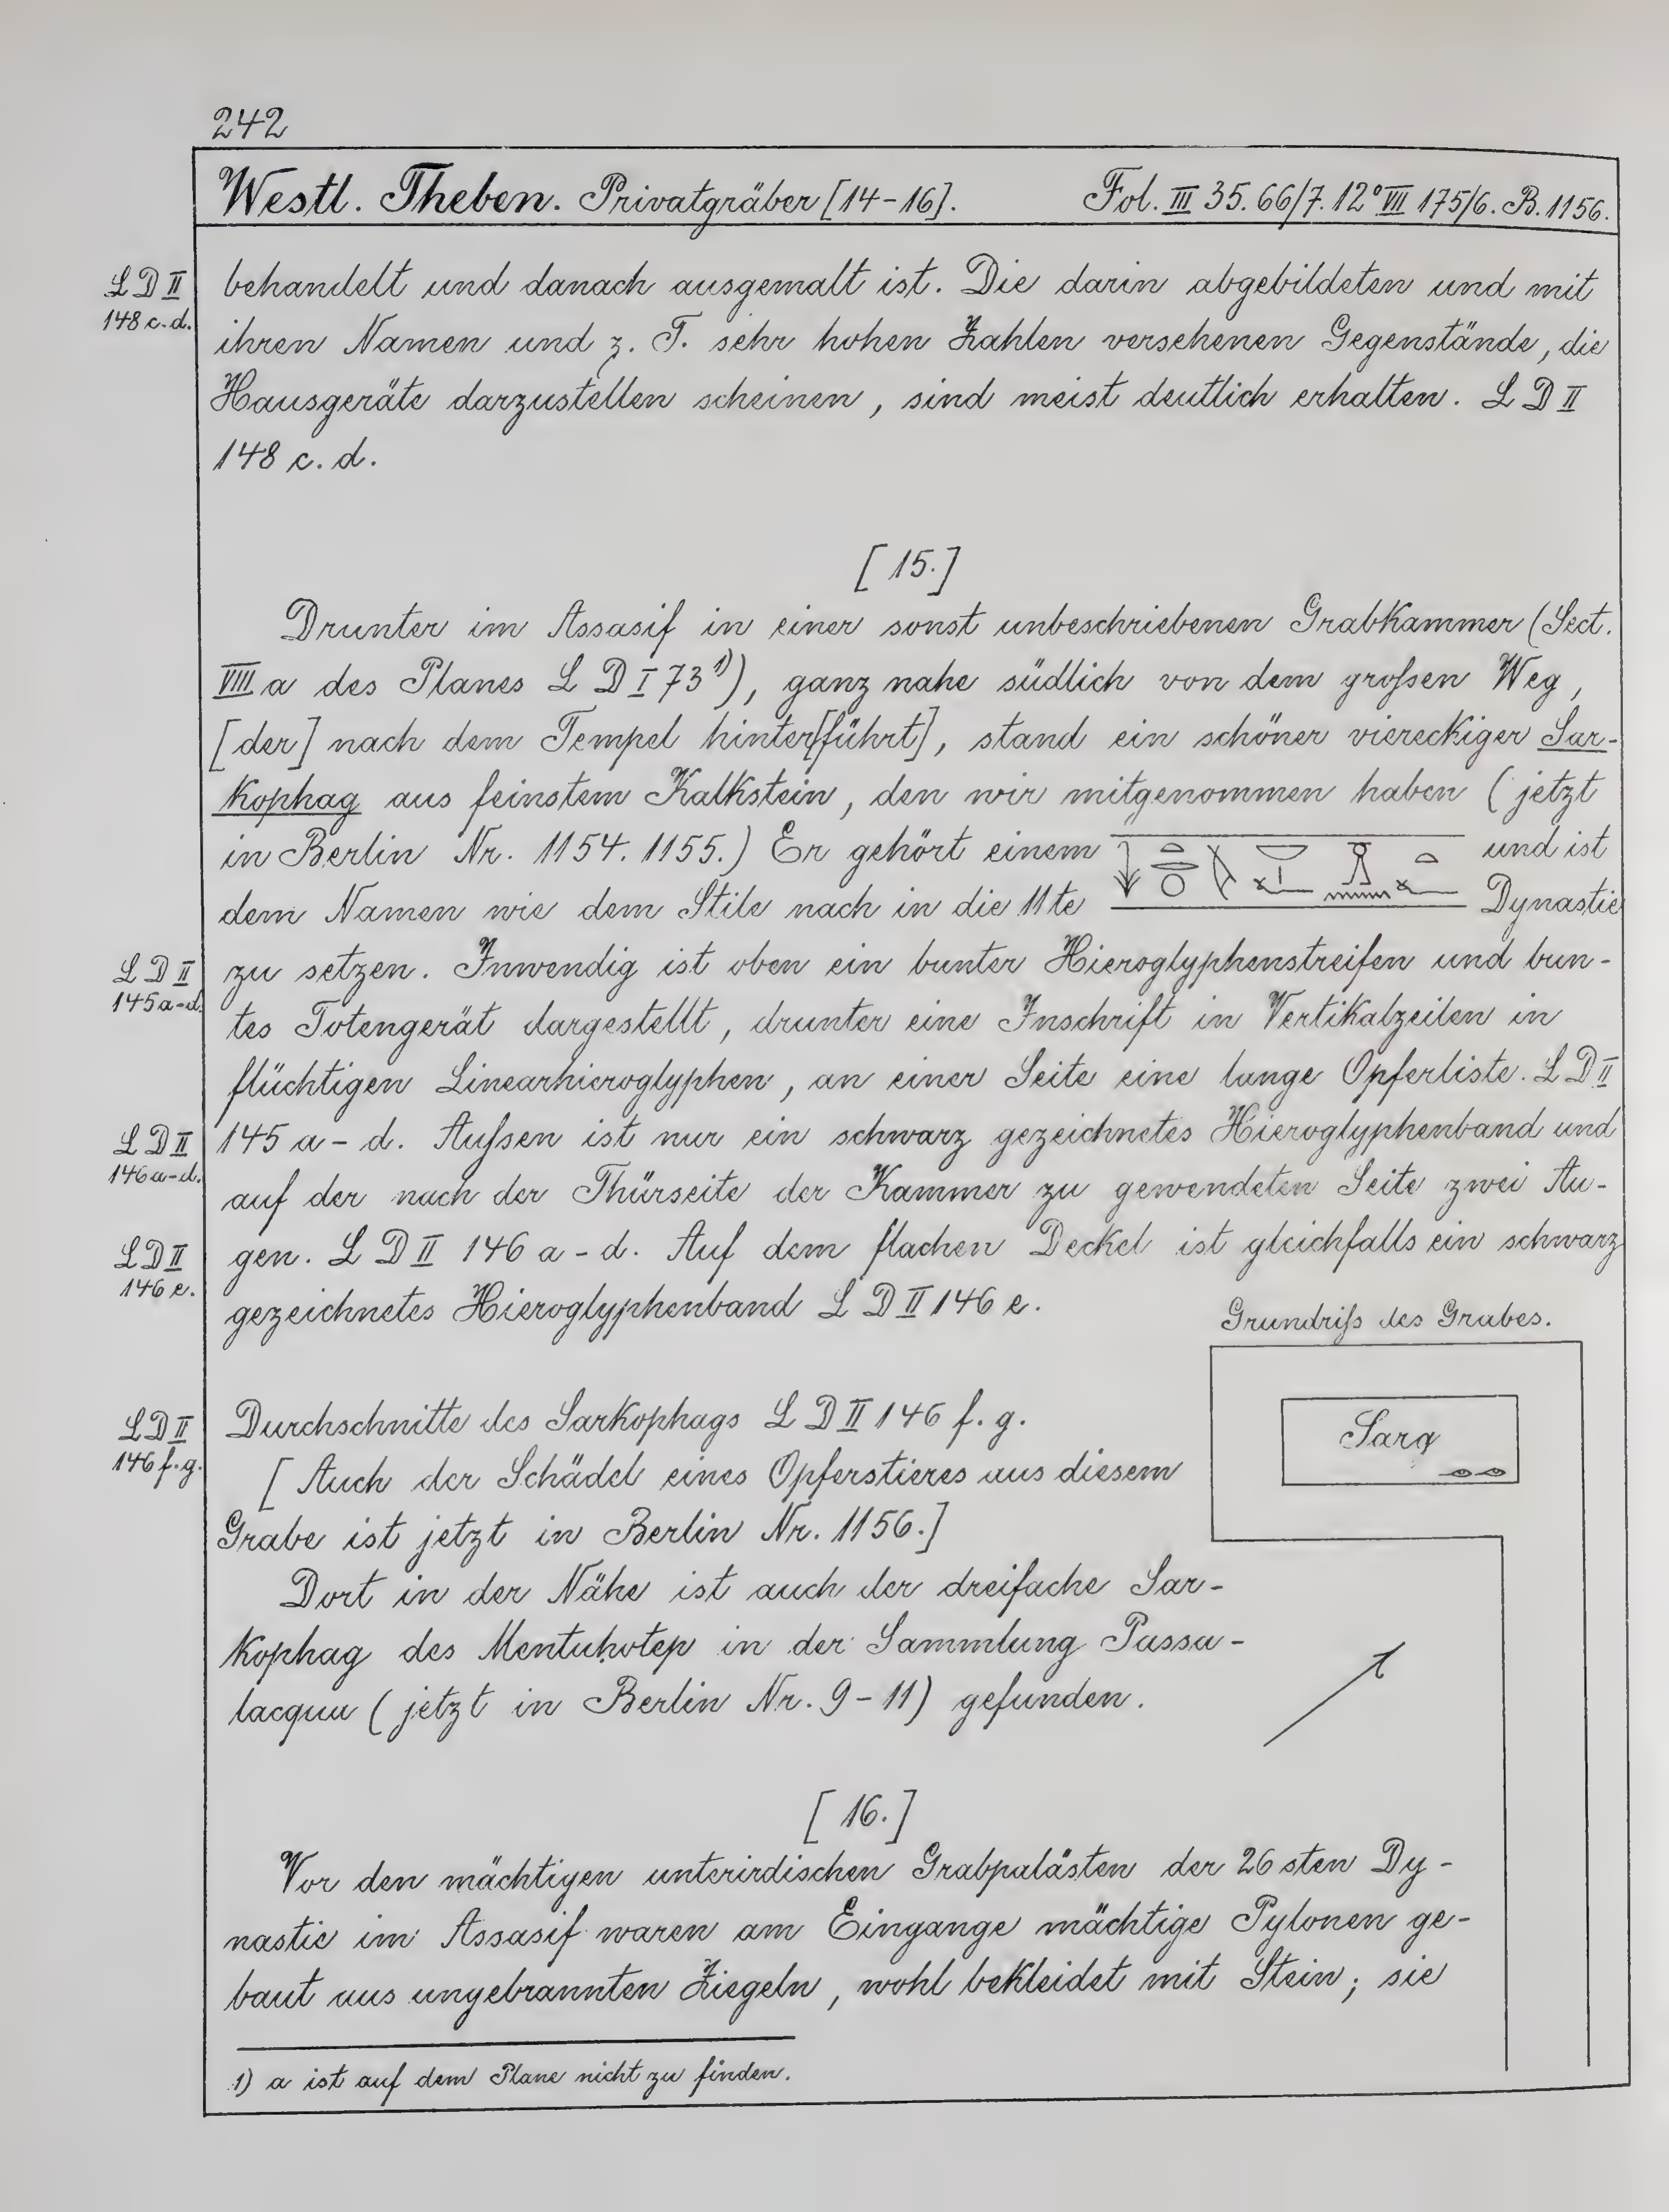 242
Westl. Theben. Privatgräber [14-16]. Fol. III 35. 66/7. 12° VII 175/6. B. 1156.
L D II
148 c. d.
behandelt und danach ausgemalt ist. Die darin abgebildeten und mit
ihren Namen und z. T. sehr hohen Zahlen versehenen Gegenstände, die
Hausgeräte darzustellen scheinen, sind meist deutlich erhalten. L D II
148 c. d.
[15.]
Drunter im Assasif in einer sonst unbeschriebenen Grabkammer (Sect.
VIII a des Planes L D I 73 1)), ganz nahe südlich von dem großen Weg,
[der] nach dem Tempel hinter[führt], stand ein schöner viereckiger Sar-
kophag aus feinstem Kalkstein, den wir mitgenommen haben (jetzt
in Berlin Nr. 1154. 1155.) Er gehört einem und ist
dem Namen wie dem Stile nach in die 11te Dynastie
L D II
145 a-d.
zu setzen. Inwendig ist oben ein bunter Hieroglyphenstreifen und bun-
tes Totengerät dargestellt, drunter eine Inschrift in Vertikalzeilen in
flüchtigen Linearhieroglyphen, an einer Seite eine lange Opferliste. L D II
L D II
146 a-d.
145 a-d. Außen ist nur ein schwarz gezeichnetes Hieroglyphenband und
auf der nach der Thürseite der Kammer zu gewendeten Seite zwei Au-
L D II
146 e.
gen. L D II 146 a-d. Auf dem flachen Deckel ist gleichfalls ein schwarz
gezeichnetes Hieroglyphenband L D II 146 e.
Grundriß des Grabes.
Sarg
L D II
146 f. g.
Durchschnitte des Sarkophags L D II 146 f. g.
[Auch der Schädel eines Opferstieres aus diesem
Grabe ist jetzt in Berlin Nr. 1156.]
Dort in der Nähe ist auch der dreifache Sar-
kophag des Mentuhotep in der Sammlung Passa-
lacqua (jetzt in Berlin Nr. 9-11) gefunden.
[16.]
Vor den mächtigen unterirdischen Grabpalästen der 26sten Dy-
nastie im Assasif waren am Eingange mächtige Pylonen ge-
baut aus ungebrannten Ziegeln, wohl bekleidet mit Stein; sie
1) a ist auf dem Plane nicht zu finden.